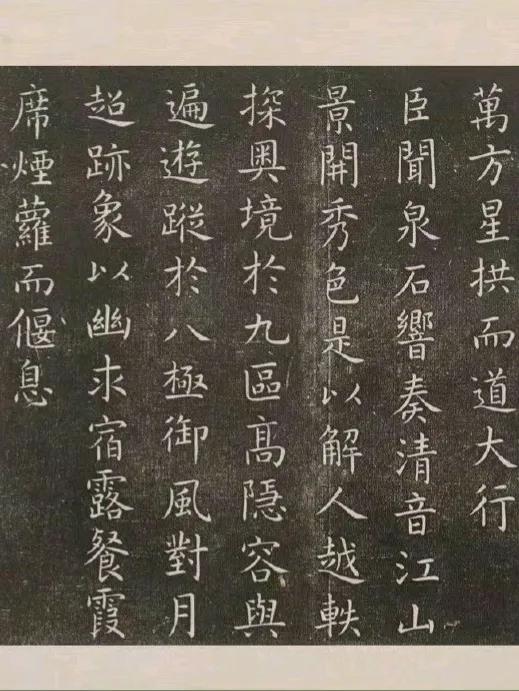 萬方星拱而道大行
臣聞泉石響奏清音江山
景開秀色是以解人越軼
探奥境於九區高隐容與
遍遊蹤於八極御風對月
超跡象以幽求宿露餐霞
席煙蘿而偃息